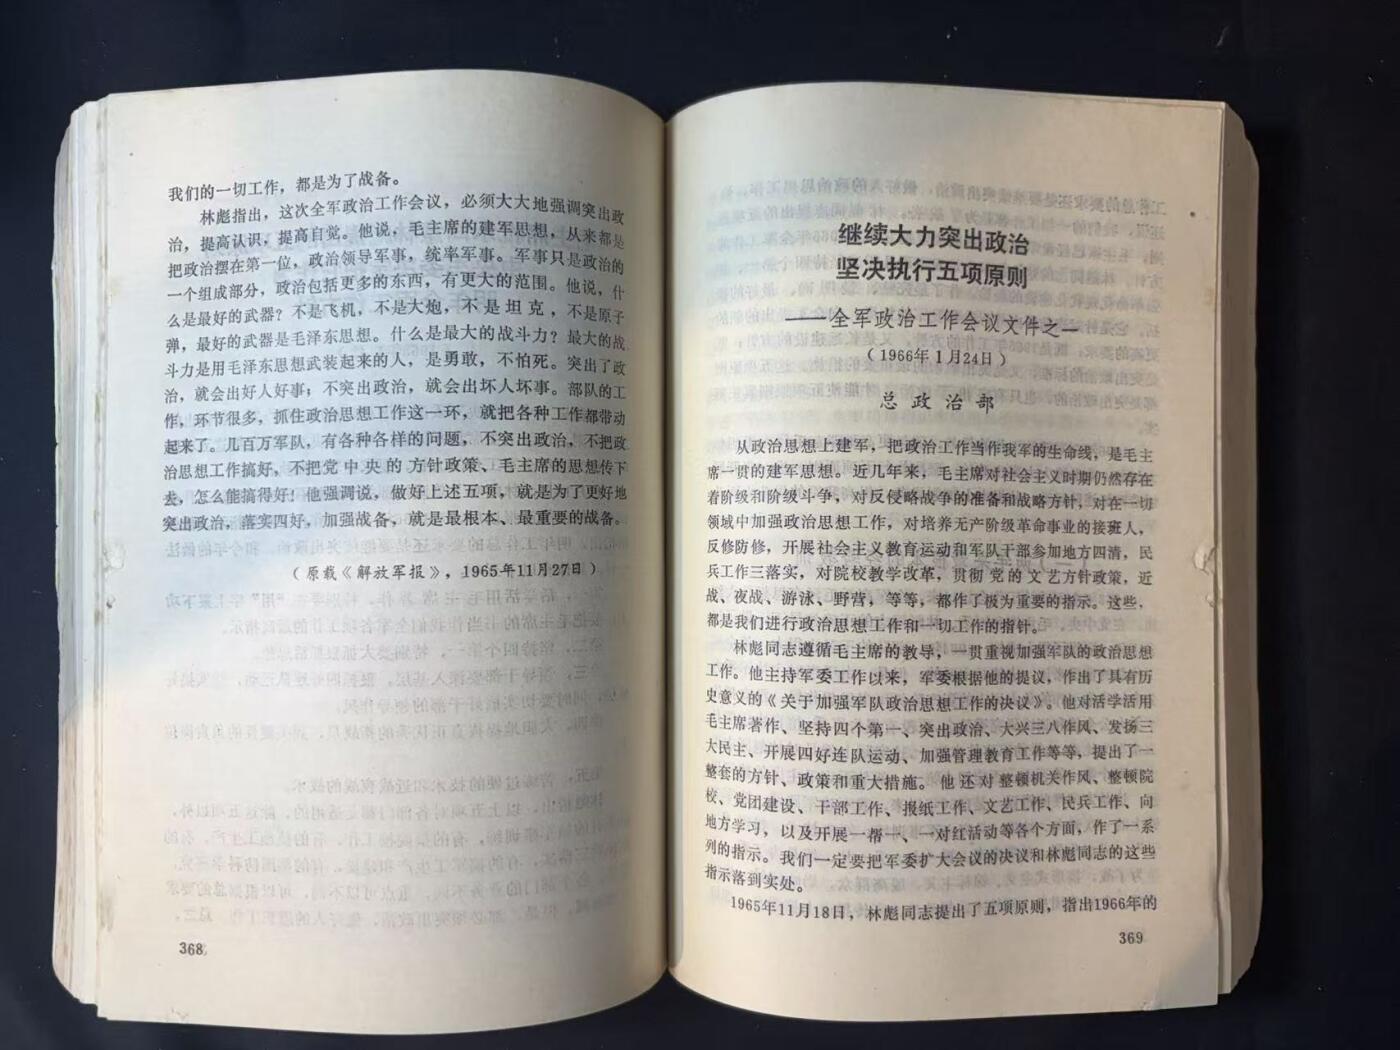 我们的一切工作，都是为了战备。
林彪指出，这次全军政治工作会议，必须大大地强调突出政
治，提高认识，提高自觉。他说，毛主席的建军思想，从来都是
把政治摆在第一位，政治领导军事，统率军事。军事只是政治的
一个组成部分，政治包括更多的东西，有更大的范围。他说，什
么是最好的武器？不是飞机，不是大炮，不是坦克，不是原子
弹，最好的武器是毛泽东思想。什么是最大的战斗力？最大的战
斗力是用毛泽东思想武装起来的人，是勇敢，不怕死。突出了政
治，就会出好人好事；不突出政治，就会出坏人坏事。部队的工
作，环节很多，抓住政治思想工作这一环，就把各种工作都带动
起来了。几百万军队，有各种各样的问题，不突出政治，不把政
治思想工作搞好，不把党中央的方针政策、毛主席的思想传下
去，怎么能搞得好！他强调说，做好上述五项，就是为了更好地
突出政治，落实四好，加强战备，就是最根本、最重要的战备。
（原载《解放军报》，1965年11月27日）
368
继续大力突出政治
坚决执行五项原则
——全军政治工作会议文件之一
（1966年1月24日）
总政治部
从政治思想上建军，把政治工作当作我军的生命线，是毛主
席一贯的建军思想。近几年来，毛主席对社会主义时期仍然存在
着阶级和阶级斗争，对反侵略战争的准备和战略方针，对在一切
领域中加强政治思想工作，对培养无产阶级革命事业的接班人，
反修防修，开展社会主义教育运动和军队干部参加地方四清，民
兵工作三落实，对院校教学改革，贯彻党的文艺方针政策，近
战、夜战、游泳、野营，等等，都作了极为重要的指示。这些，
都是我们进行政治思想工作和一切工作的指针。
林彪同志遵循毛主席的教导，一贯重视加强军队的政治思想
工作。他主持军委工作以来，军委根据他的提议，作出了具有历
史意义的《关于加强军队政治思想工作的决议》。他对活学活用
毛主席著作、坚持四个第一、突出政治、大兴三八作风、发扬三
大民主、开展四好连队运动、加强管理教育工作等等，提出了一
整套的方针、政策和重大措施。他还对整顿机关作风、整顿院
校、党团建设、干部工作、报纸工作、文艺工作、民兵工作、向
地方学习，以及开展一帮一、一对红活动等各个方面，作了一系
列的指示。我们一定要把军委扩大会议的决议和林彪同志的这些
指示落到实处。
1965年11月18日，林彪同志提出了五项原则，指出1966年的
369